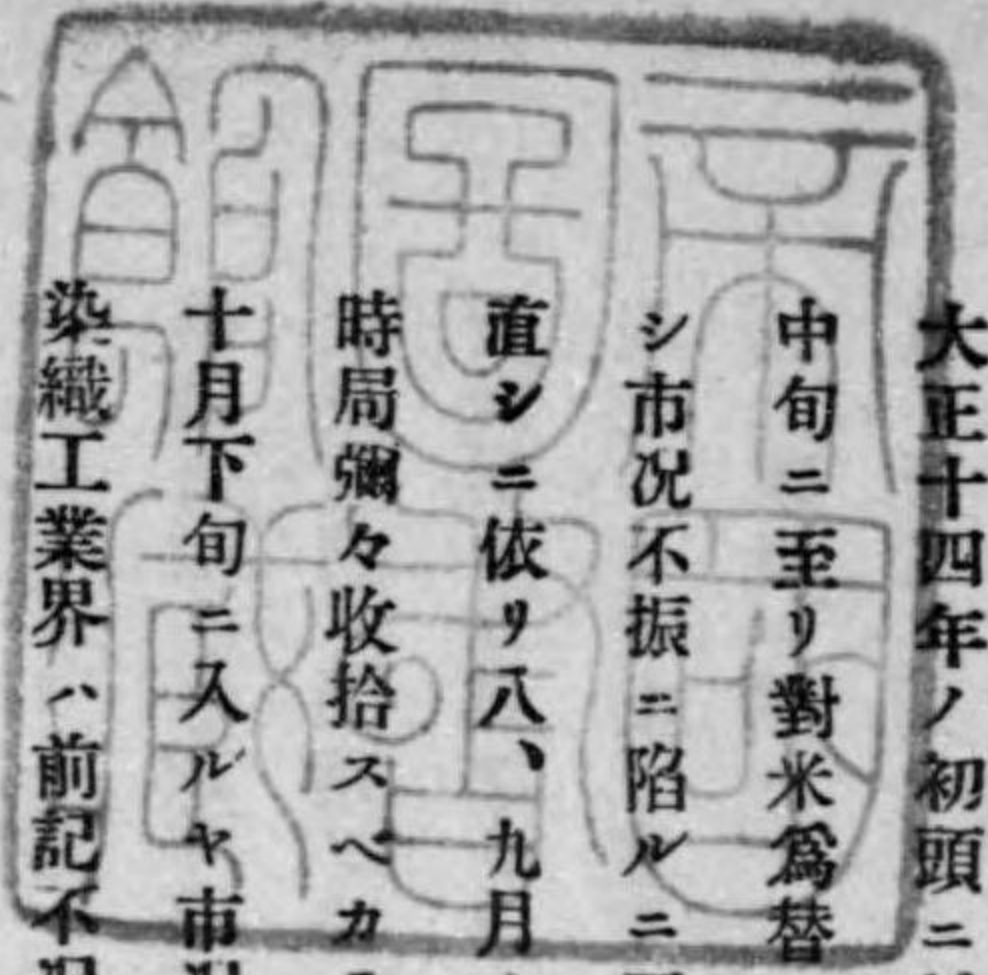 大正十四年ノ初頭ニ
中旬ニ至リ對米爲替
シ市况不振ニ陷ルニ
直シニ依リ八、九月
時局彌々收拾スベカ
十月下旬ニ入ルヤ市
染織工業界ハ前記不